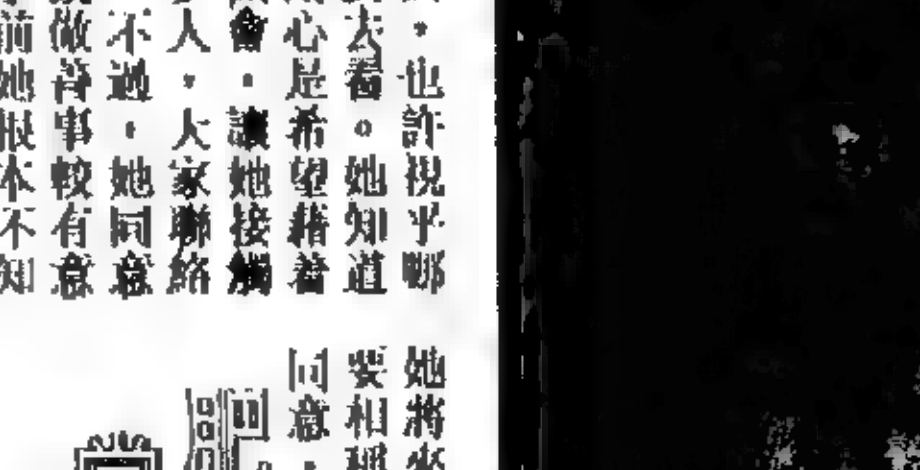 ，也許視乎哪
去看。她知道
心是希望藉着
會，讓她接觸
人，大家聯絡
不過，她同意
做善事較有意
前她根本不知
她將來
要相
同意，